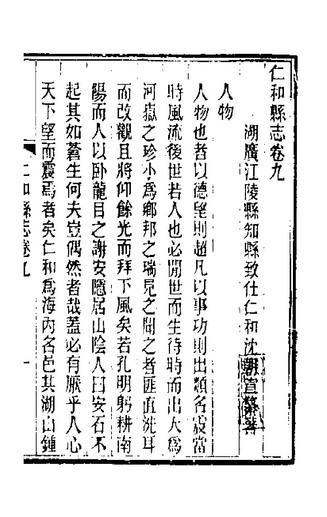 仁和縣志卷九
湖廣江陵縣知縣致仕仁和沈朝宣纂著
人物
人物也者以德望則超凡以事功則出類名宬當
時風流後世若人也必間世而生待時而出大爲
河嶽之珍小爲鄉邦之瑞見之聞之者匪直洗耳
而改觀且將仰餘光而拜下風矣若孔明躬耕南
陽而人以卧龍目之謝安隱居山陰人曰安石不
起其如蒼生何夫豈偶然者哉蓋必有厭乎人心
天下望而震爲者矣仁和爲海內名邑其湖山鍾
仁和縣志卷九
一